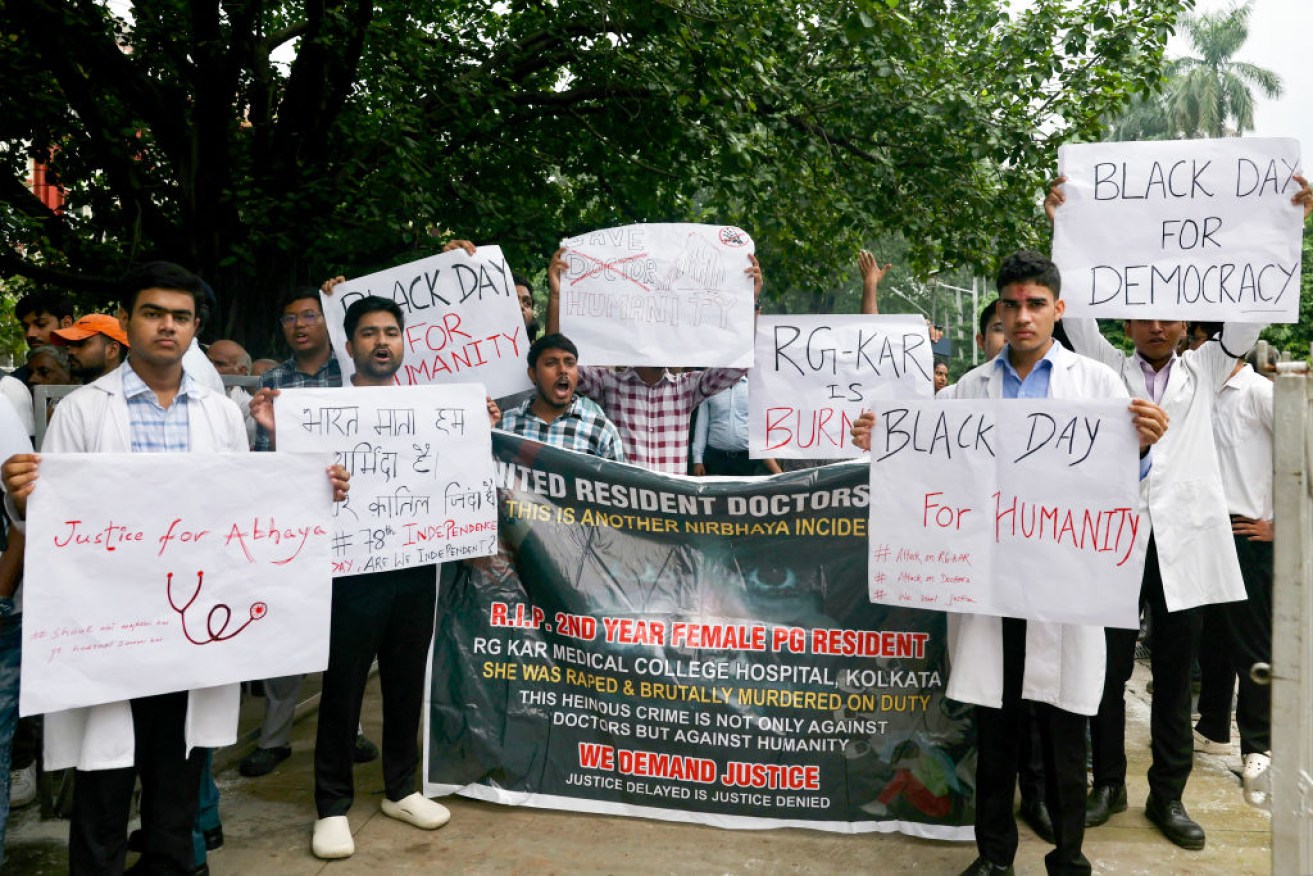 BLACK DAY
FOR
HUMANITY
SAVE
DOCTOR
HUMANITY
RG-KAR
IS
BURN
BLACK DAY
FOR
DEMOCRACY
Justice for Abhaya
भारत माता हम
शर्मिंदा है।
कातिल जिंदा है
# 78th INDEPENDENCE
DAY, ARE WE INDEPENDENT?
BLACK DAY
For HUMANITY
# Attack on RG-KAR
# Attack on Doctors
# We want justice
NITED RESIDENT DOCTORS
THIS IS ANOTHER NIRBHAYA INCIDE
R.I.P. 2ND YEAR FEMALE PG RESIDENT
RG KAR MEDICAL COLLEGE HOSPITAL, KOLKATA
SHE WAS RAPED & BRUTALLY MURDERED ON DUTY
THIS HEINOUS CRIME IS NOT ONLY AGAINST
DOCTORS BUT AGAINST HUMANITY
WE DEMAND JUSTICE
JUSTICE DELAYED IS JUSTICE DENIED